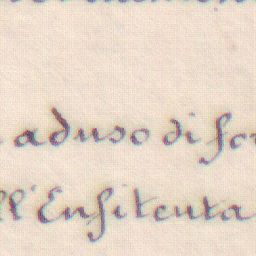 aduso di for
ll'Enfitenta